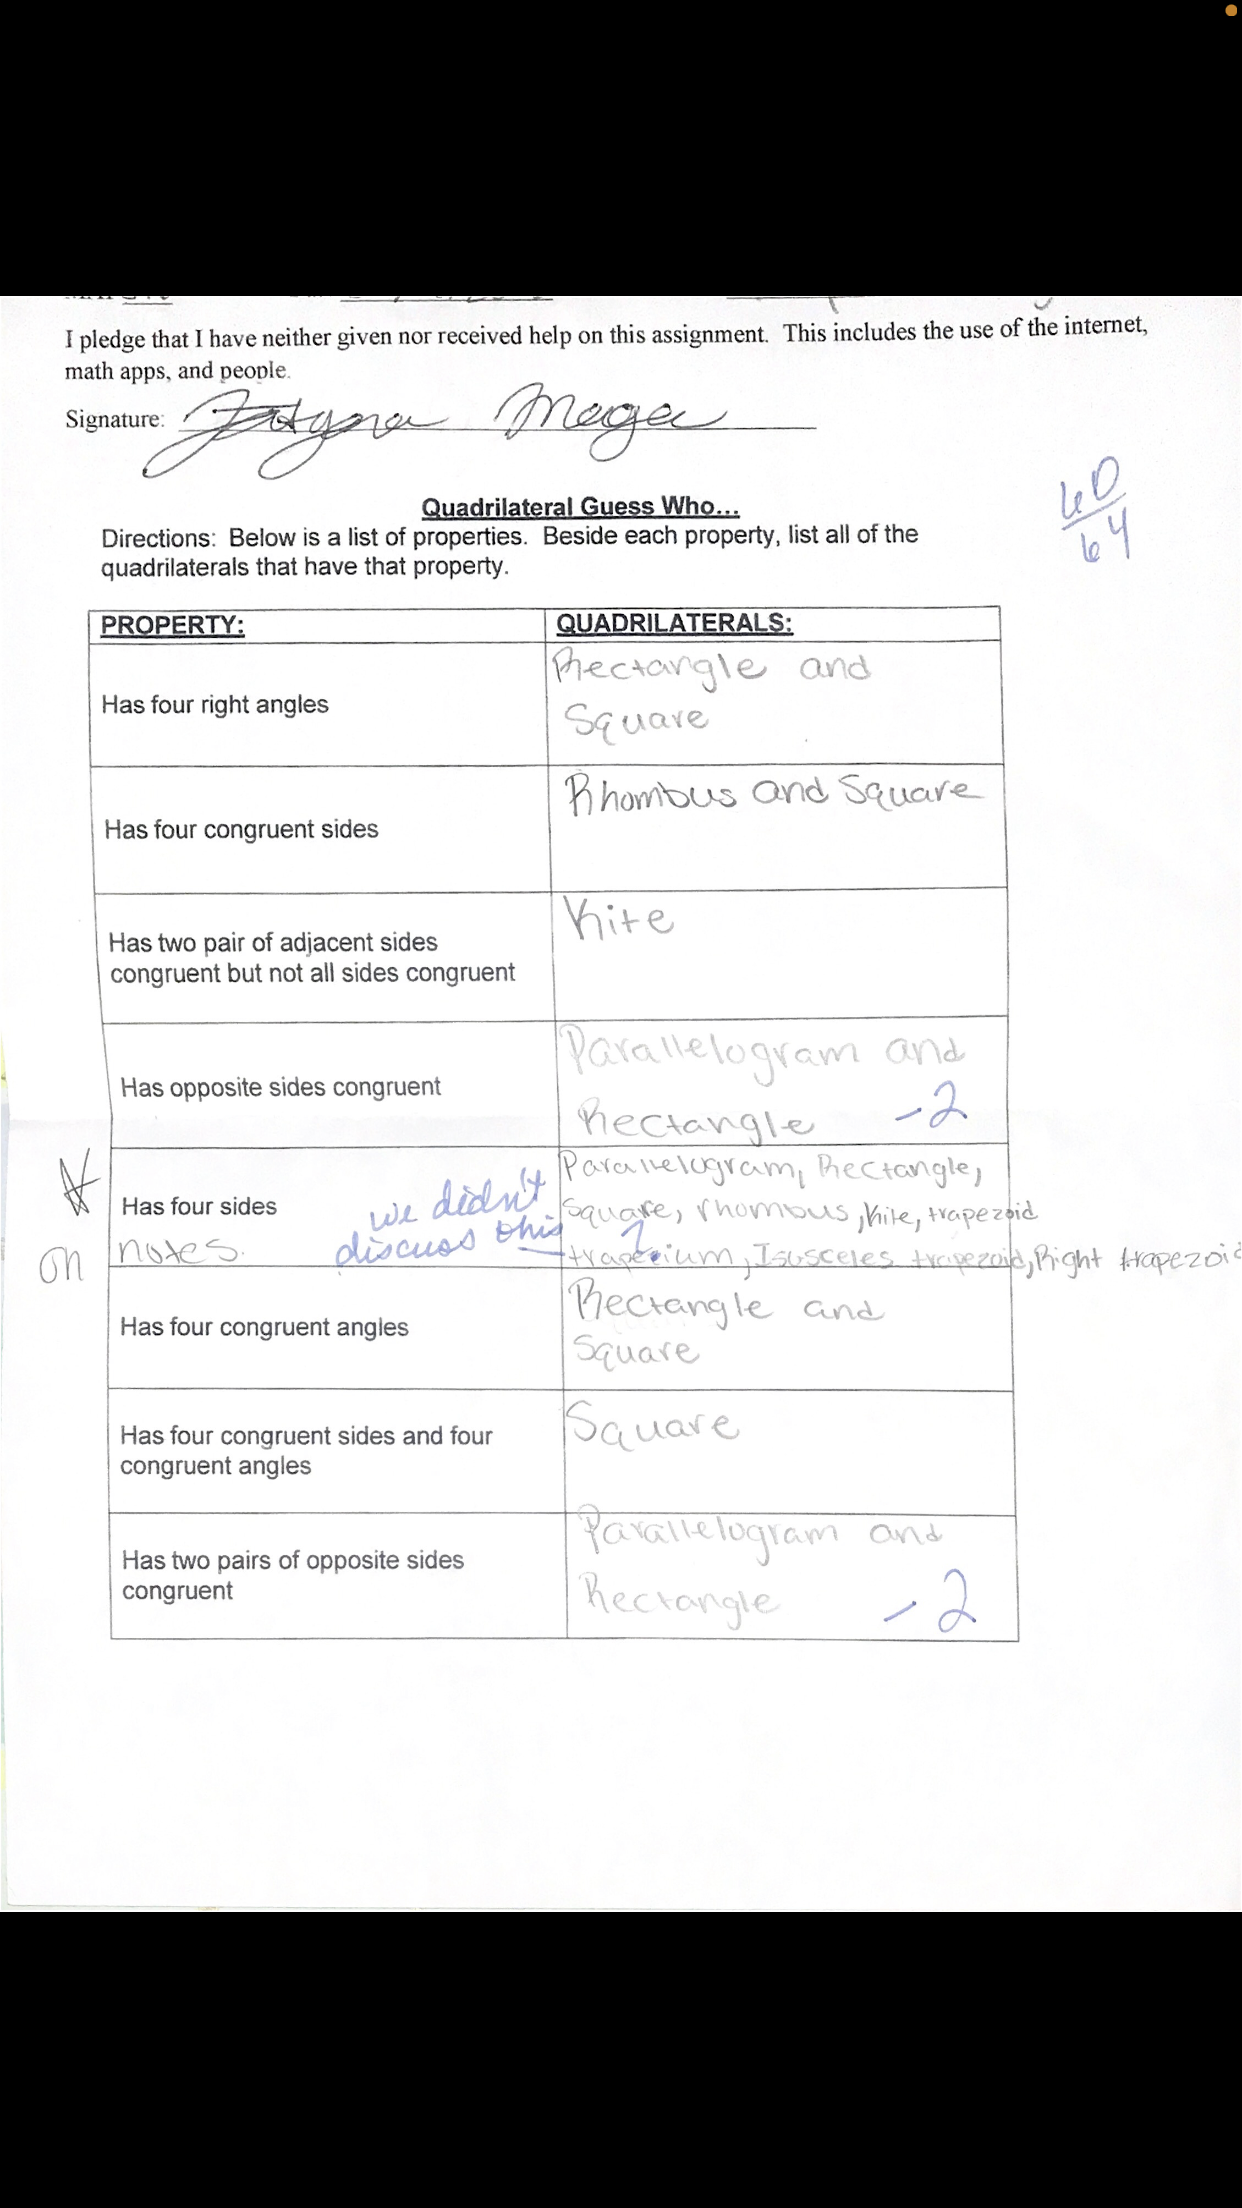 I pledge that I have neither given nor received help on this assignment. This includes the use of the internet,
math apps, and people.
Signature:
60
64
Quadrilateral Guess Who...
Directions: Below is a list of properties. Beside each property, list all of the
quadrilaterals that have that property.
PROPERTY: QUADRILATERALS:
Has four right angles
Rectangle and
Square
Has four congruent sides
Rhombus and Square
Has two pair of adjacent sides
congruent but not all sides congruent
Kite
Has opposite sides congruent
Parallelogram and
Rectangle -2
Has four sides
on notes.
we didn't
discuss this
Parallelogram, Rectangle,
Square, rhombus, Kite, trapezoid
trapezium, Isusceles trapezoid, Right trapezoid
Has four congruent angles
Rectangle and
Square
Has four congruent sides and four
congruent angles
Square
Has two pairs of opposite sides
congruent
Parallelogram and
Rectangle -2